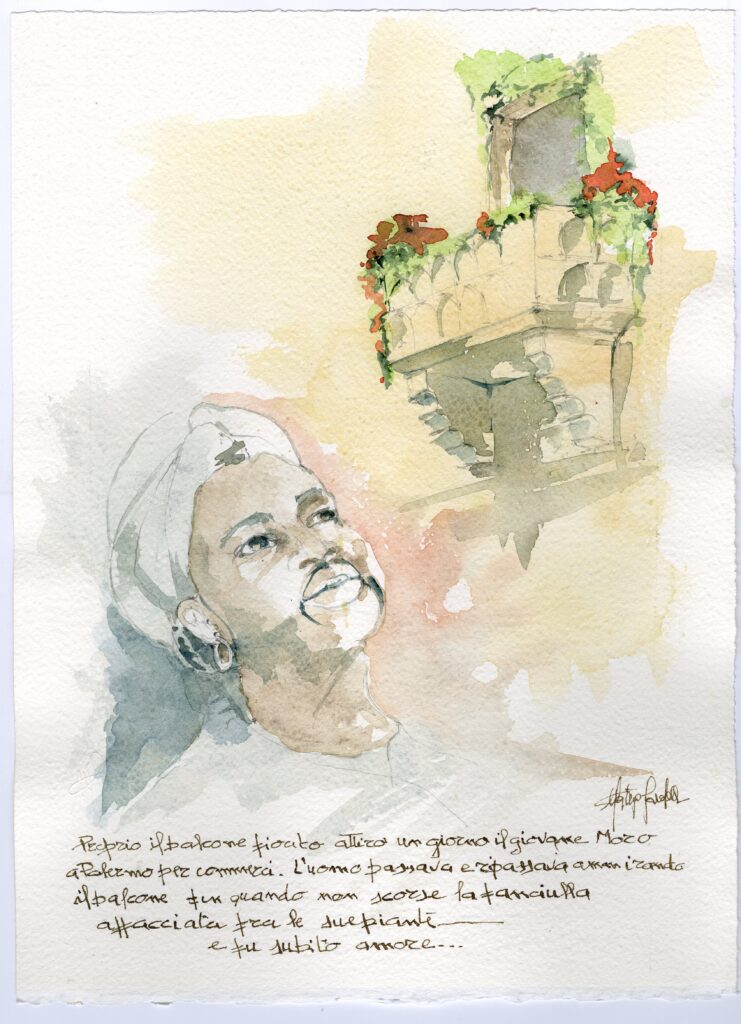 Proprio il balcone fiorito attirò un giorno il giovane Moro
a Palermo per commerci. L'uomo passava e ripassava ammirando
il balcone fin quando non scorse la fanciulla
affacciata fra le sue piante
e fu subito amore...